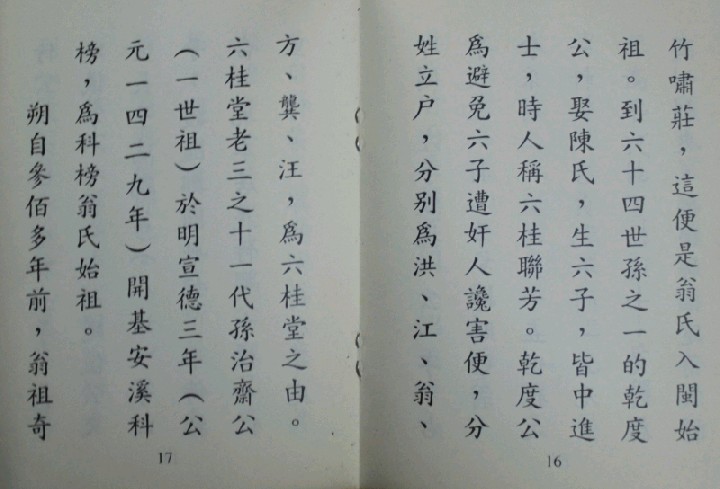 竹嘯莊，這便是翁氏入閩始
祖。到六十四世孫之一的乾度
公，娶陳氏，生六子，皆中進
士，時人稱六桂聯芳。乾度公
為避免六子遭奸人讒害便，分
姓立户，分别為洪、江、翁、
16
方、龔、汪，為六桂堂之由。
六桂堂老三之十一代孫治齋公
（一世祖）於明宣德三年（公
元一四二九年）開基安溪科
榜，為科榜翁氏始祖。
朔自參佰多年前，翁祖奇
17